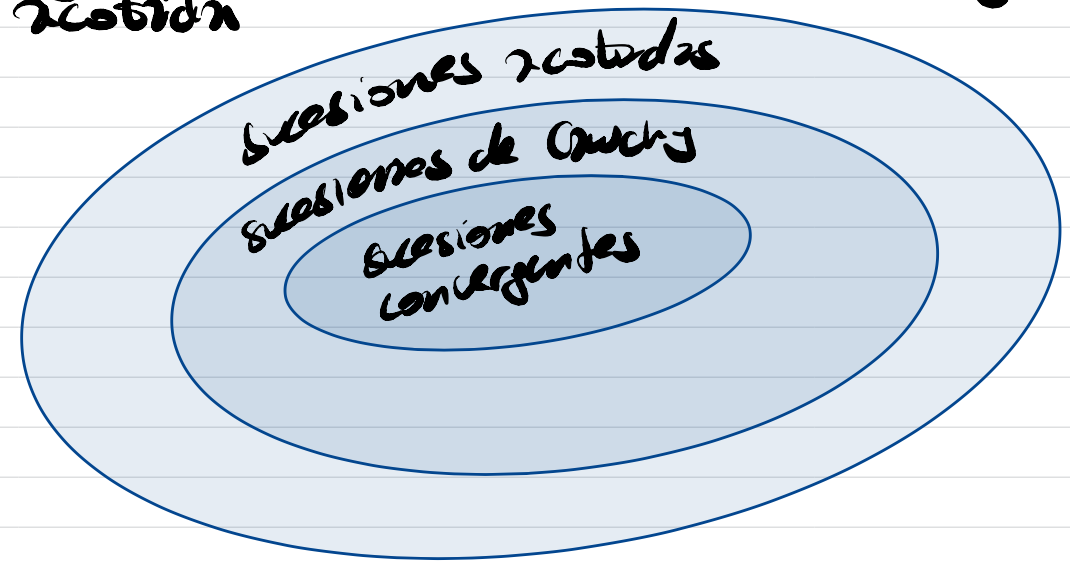 acotada
sucesiones acotadas
sucesiones de Cauchy
sucesiones
convergentes